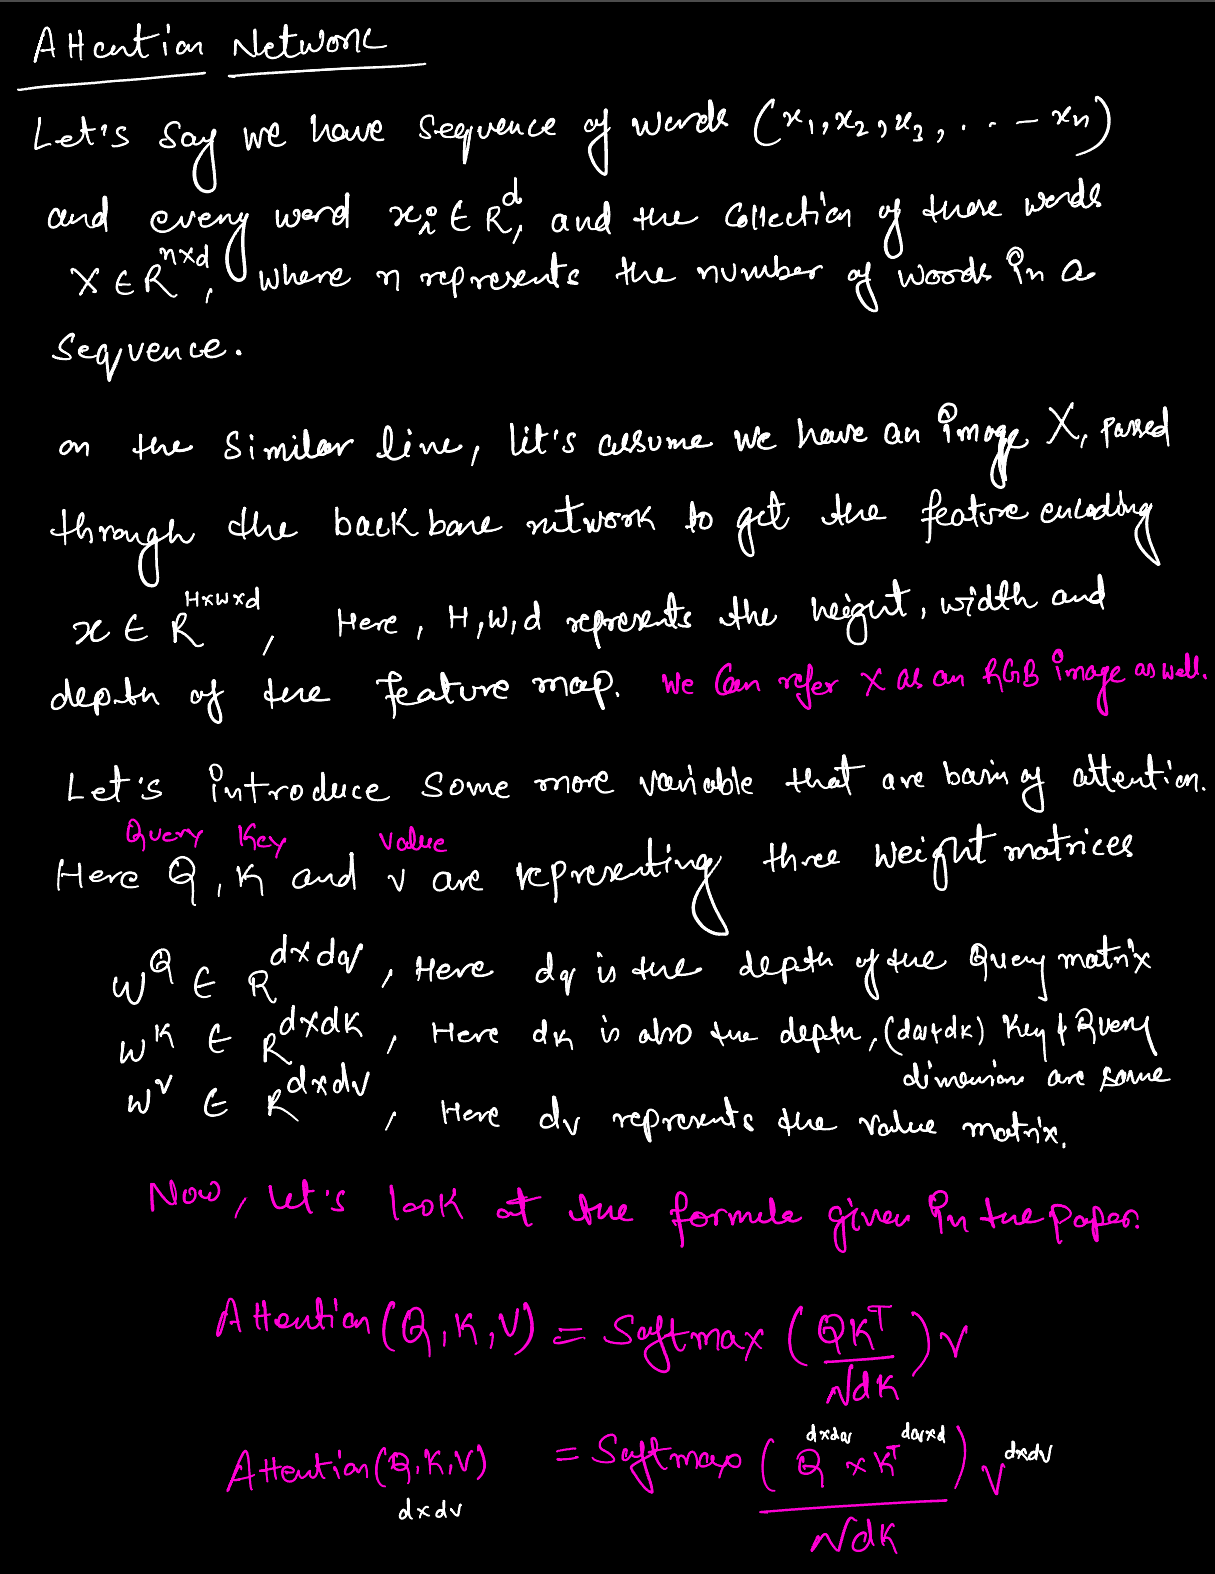 Attention Network
Let's say we have sequence of words (x1, x2, x3, . . - - xn)
and every word xi ∈ R^d, and the collection of these words
X ∈ R^nxd, where n represents the number of words in a
sequence.
on the similar line, let's assume we have an image X, passed
through the backbone network to get the feature encoding
x ∈ R^HxWxd, Here, H,W,d represents the height, width and
depth of the feature map. We Can refer X as an RGB image as well.
Let's introduce some more variable that are basis of attention.
Query Key Value
Here Q, K and V are representing three weight matrices
W^Q ∈ R^dxdq, Here dq is the depth of the Query matrix
W^K ∈ R^dxdK, Here dK is also the depth, (dq & dk) Key & Query
dimensions are same
W^V ∈ R^dxdv, Here dv represents the value matrix.
Now, let's look at the formula given in the paper.
Attention(Q,K,V) = Softmax (QK^T / √dK) V
dxdq dqxd dxdv
Attention(Q,K,V) = Softmax (Q x K^T / √dK) V
dxdv